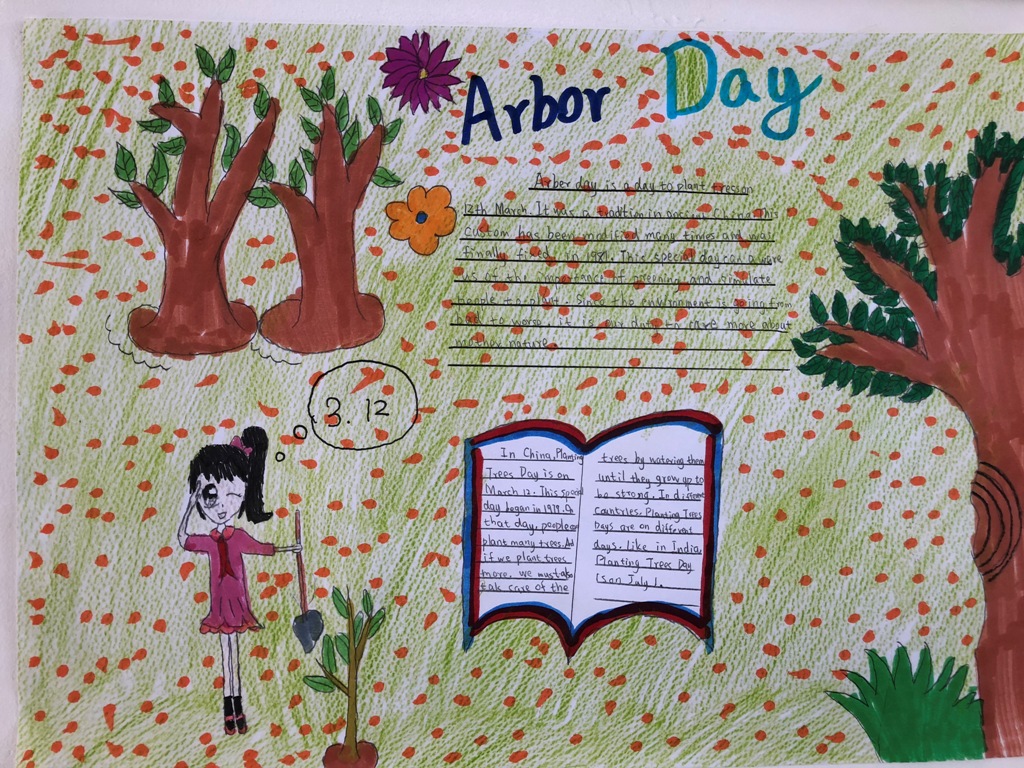 Arbor Day
Arber day is a day to plant tresson
12th March. It was a tradition in
custom has been modified many times and wai
finally fi in 1981. This special day can a
us of the importance of greening and simulate
people to plant. Since the environment is going from
bad to worse, it is our duty to care more about
mother nature
3. 12
In China, Planting
Trees Day is on
March 12. This special
day began in 1979. On
that day, people
plant many trees. And
if we plant trees
more, we must also
tak care of the
trees by watering them
until they grow up to
be strong. In different
countries, Planting Trees
Days are on different
days. like in India,
Planting Trees Day
is on July 1.